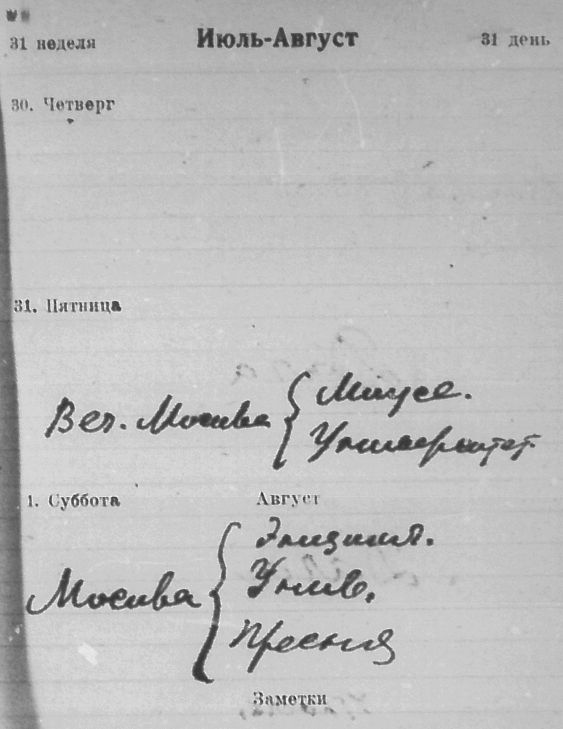 31 неделя Июль-Август 31 день
30. Четверг
31. Пятница
Веч. Москва { Миусс.
Университет
1. Суббота Август
Москва { Энцикл.
Унив.
Пресня
Заметки